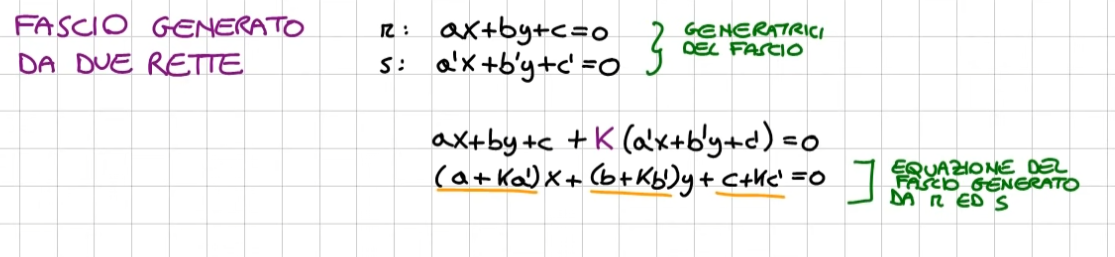 FASCIO GENERATO
DA DUE RETTE
r: ax+by+c=0
s: a'x+b'y+c'=0
GENERATRICI
DEL FASCIO
ax+by+c +K(a'x+b'y+c')=0
(a+Ka')x+(b+Kb')y+c+Kc'=0
EQUAZIONE DEL
FASCIO GENERATO
DA r ED S